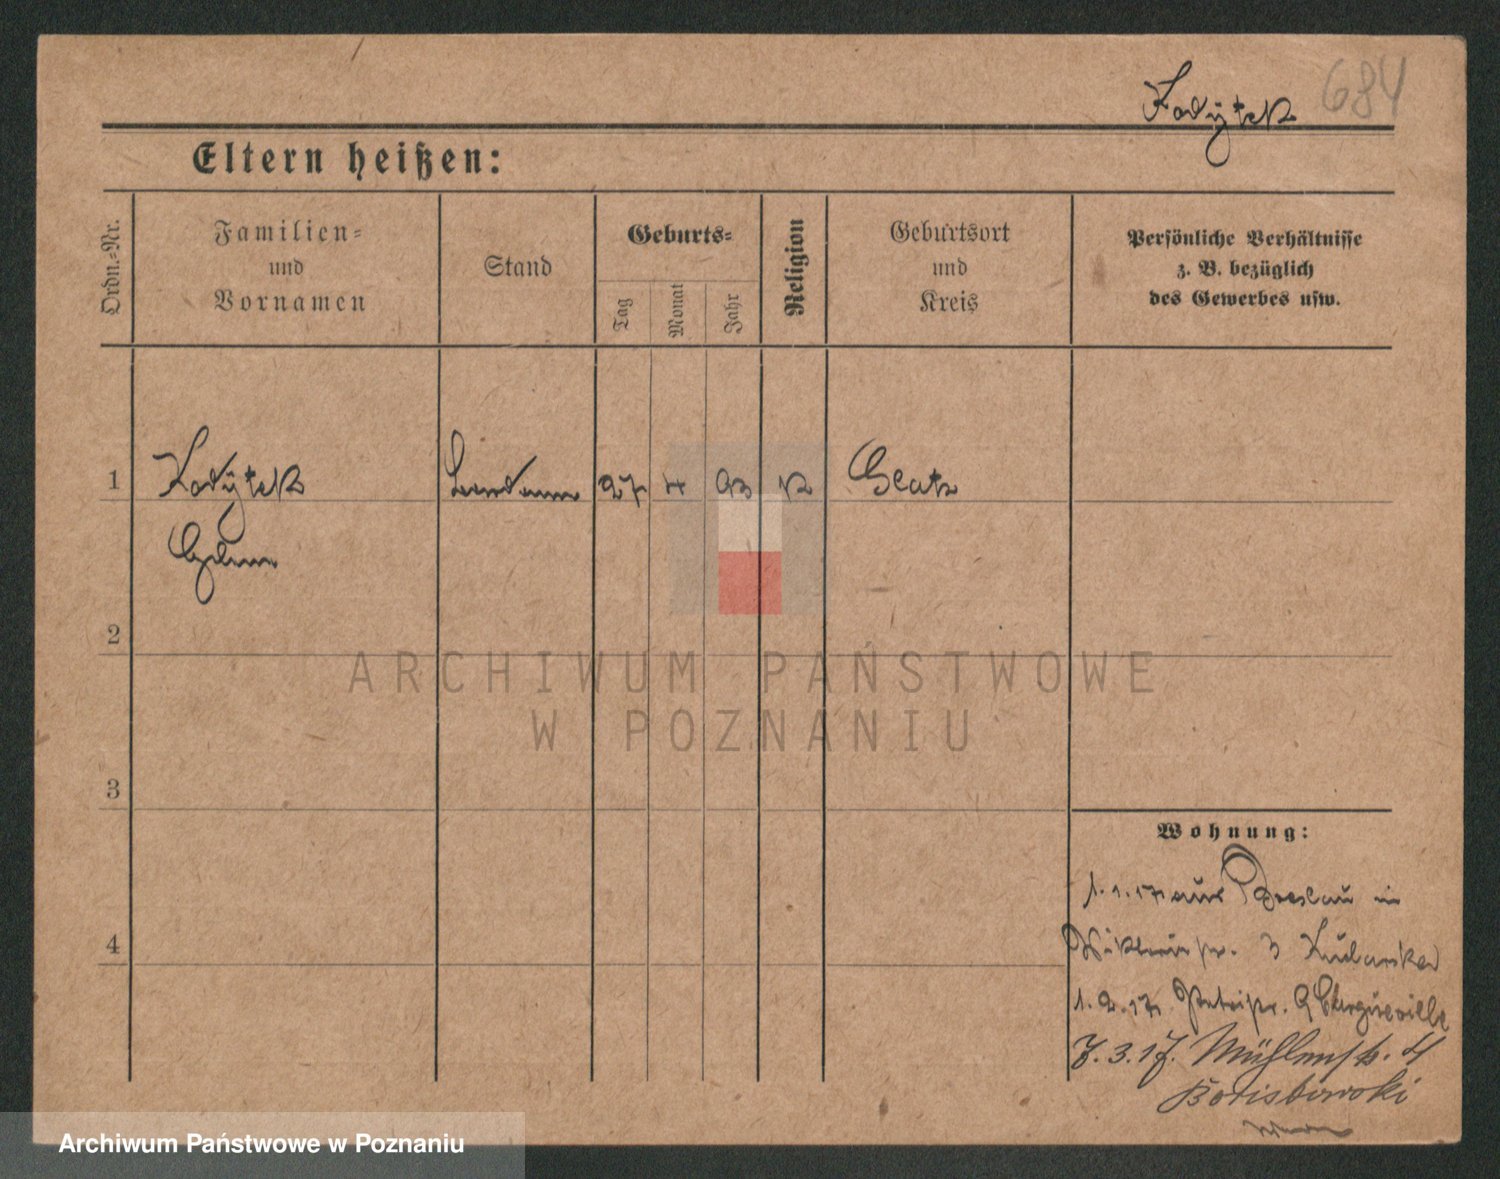 Kodÿtek 684
Eltern heißen:
Ordn.-Nr.
Familien-
und
Vornamen
Stand
Geburts-
Tag
Monat
Jahr
Religion
Geburtsort
und
Kreis
Persönliche Verhältnisse
z. B. bezüglich
des Gewerbes usw.
1 Kodÿtek 27 4 93 K Glatz
2
3
4
Wohnung:
1. 1. 17 aus Breslau in
3
1. 2. 17 Petristr. 9
7. 3. 17. Mühlenstr. 4
ARCHIWUM PAŃSTWOWE
W POZNANIU
Archiwum Państwowe w Poznaniu